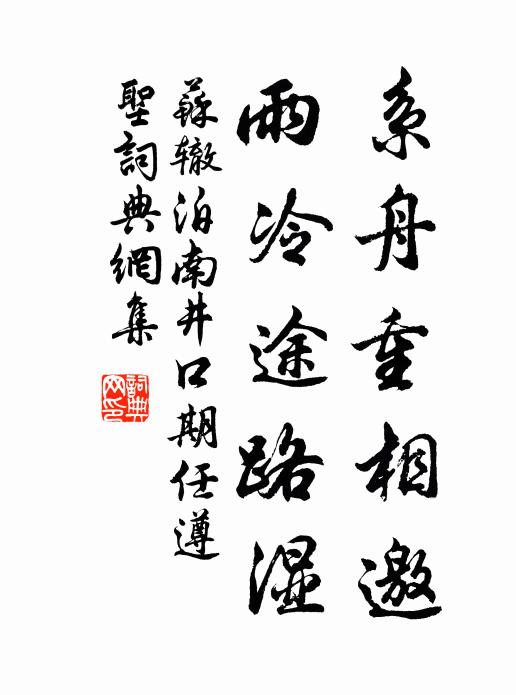 系舟重相邀
雨冷途路湿
蘇辙泊南井口期任遵
聖詞典網集
詞典
网印